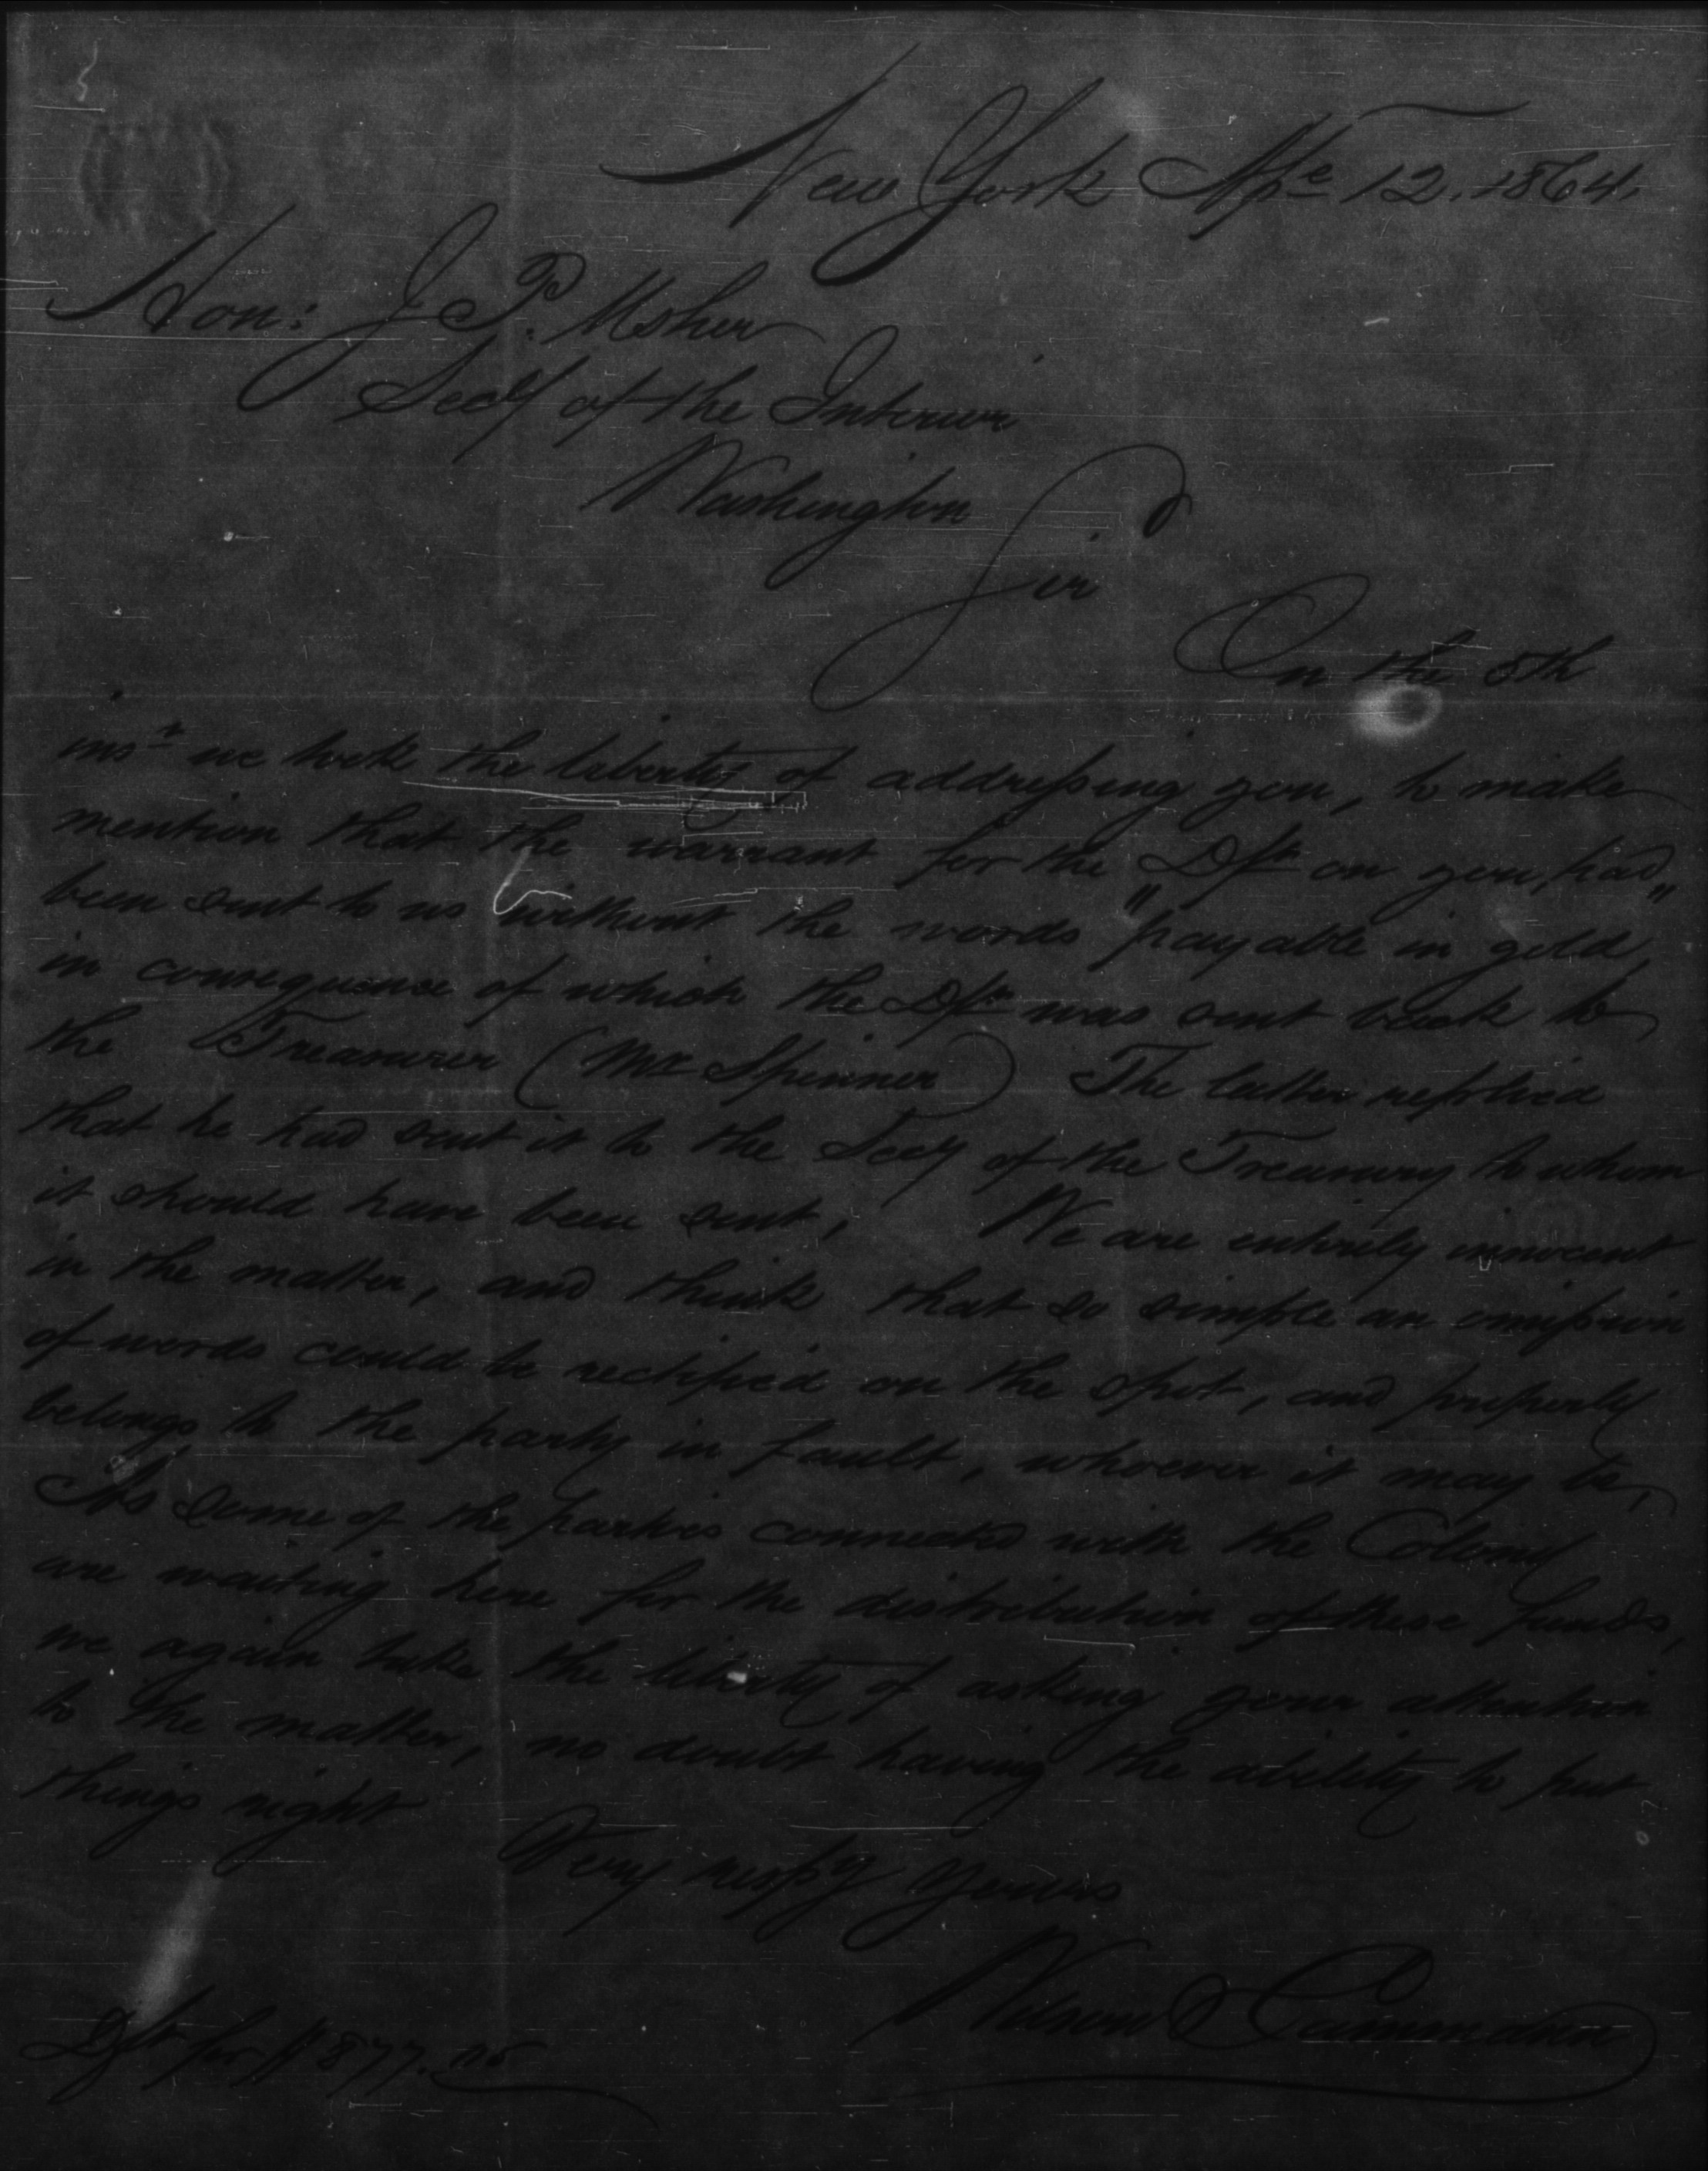 New York Apl 12. 1864.
Hon: J. P. Usher
Secy of the Interior
Washington
Sir
On the 8th
inst we took the liberty of addressing you, to make
mention that the warrant for the Dft on you, had
been sent to us without the words "payable in gold"
in consequence of which the Dft was sent back to
the Treasurer (Mr Spinner) The latter replied
that he had sent it to the Secy of the Treasury to whom
it should have been sent, We are entirely innocent
in the matter, and think that so simple an omission
of words could be rectified on the spot, and properly
belongs to the party in fault, whoever it may be,
As some of the parties connected with the Colony
are waiting here for the distribution of these funds,
we again take the liberty of asking your attention
to the matter, no doubt having the ability to put
things right
Very respy yours
Wilson & Cammann
Dft for $877.